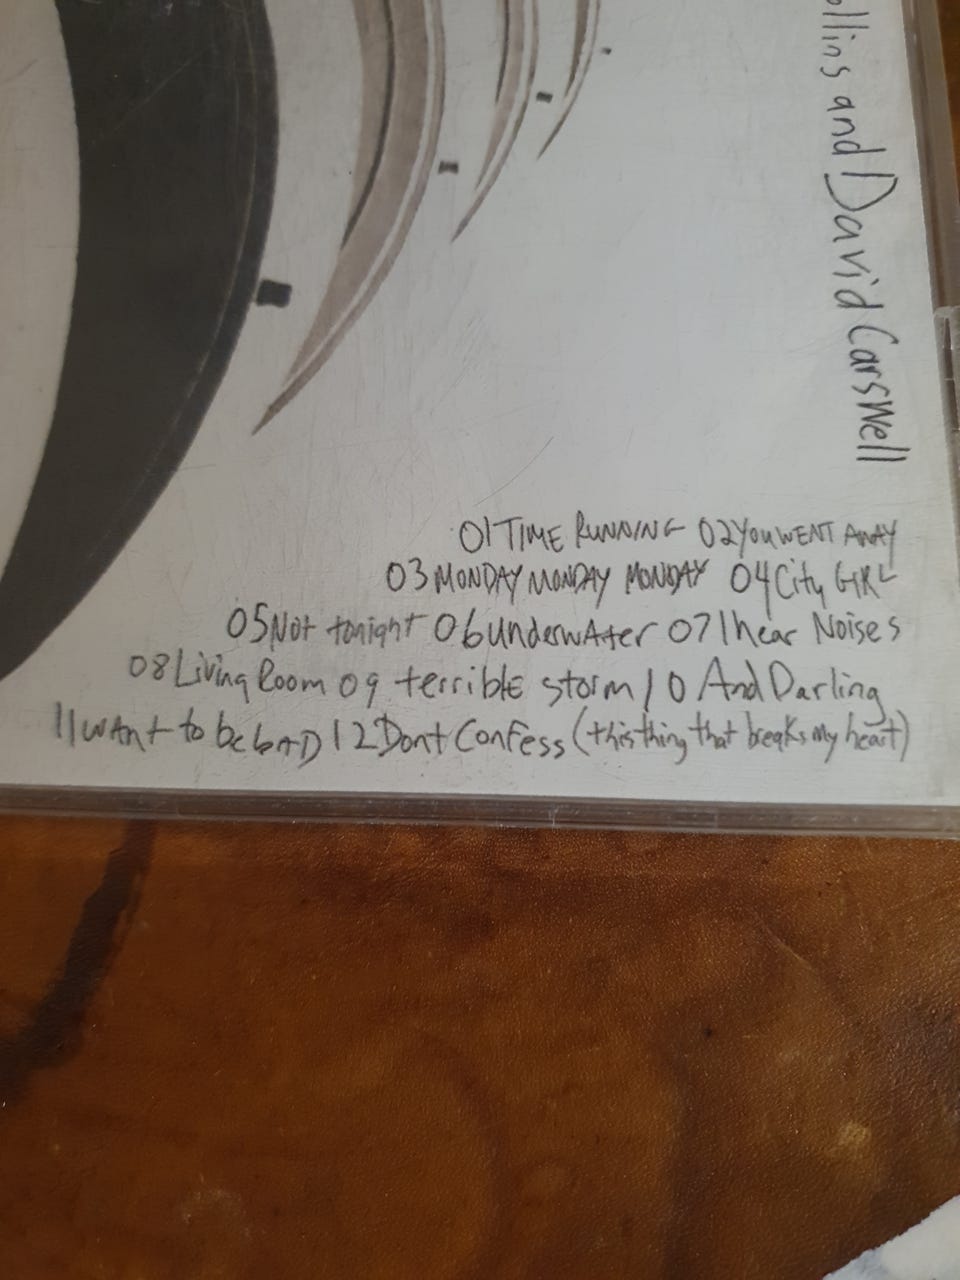 ollins and David Carswell
01 TIME RUNNING 02 You WENT AWAY
03 MONDAY MONDAY MONDAY 04 City GIRL
05 Not tonight 06 UnderwAter 07 I hear Noises
08 Living Room 09 terriblE storm 10 And Darling
11 wAnt to be bAD 12 Dont ConFess (this thing that breaks my heart)